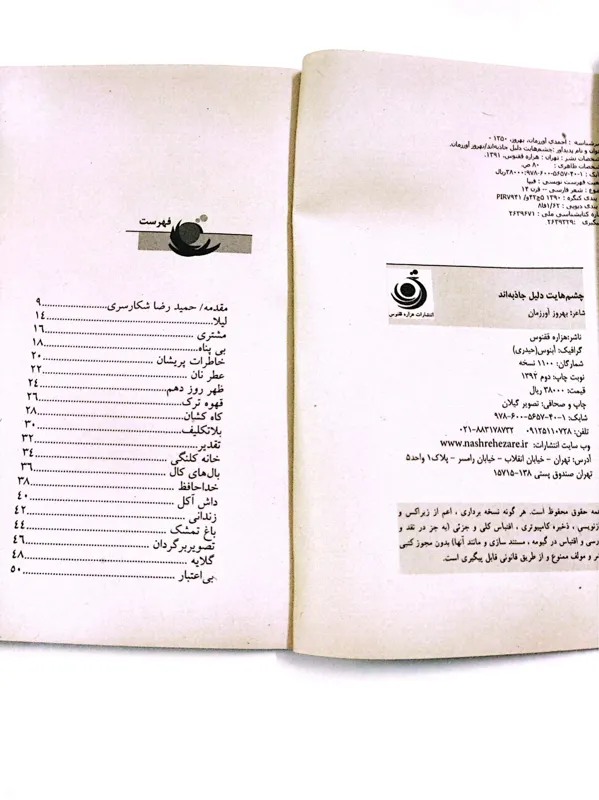 سرشناسه : احمدی آورزمان، بهروز، ۱۳۵۰ -
عنوان و نام پدیدآور : چشم‌هایت دلیل جاذبه‌اند/بهروز آورزمان.
مشخصات نشر : تهران : هزاره ققنوس، ۱۳۹۱.
مشخصات ظاهری : ۸۰ ص.
شابک : ۹۷۸-۶۰۰-۵۶۵۷-۴۰-۱ : ۳۸۰۰۰ریال
وضعیت فهرست نویسی : فیپا
موضوع : شعر فارسی -- قرن ۱۴
بندی کنگره : ۱۳۹۰ PIR۷۹۴۱
بندی دیویی : ۱/۶۲فا۸
شماره کتابشناسی ملی : ۲۶۳۹۶۷۱
پیگیری : ۲۶۳۹۳۲۹
چشم‌هایت دلیل جاذبه‌اند
شاعر: بهروز آورزمان
انتشارات هزاره ققنوس
ناشر:هزاره ققنوس
گرافیک: آبنوس(حیدری)
شمارگان: ۱۱۰۰ نسخه
نوبت چاپ: دوم ۱۳۹۲
قیمت: ۳۸۰۰۰ ریال
چاپ و صحافی: تصویر گیلان
شابک: ۱-۴۰-۵۶۵۷-۶۰۰-۹۷۸
تلفن: ۰۹۱۲۵۱۱۰۷۲۸ ۰۲۱-۸۸۳۱۷۸۷۳۲
وب سایت انتشارات: www.nashrehezare.ir
آدرس: تهران - خیابان انقلاب - خیابان رامسر - پلاک۱ واحد۵
تهران صندوق پستی ۱۳۸-۱۵۷۱۵
همه حقوق محفوظ است. هر گونه نسخه برداری ، اعم از زیراکس و
بازنویسی ، ذخیره کامپیوتری ، اقتباس کلی و جزئی (به جز در نقد و
بررسی و اقتباس در گیومه ، مستند سازی و مانند آنها) بدون مجوز کتبی
ناشر و مولف ممنوع و از طریق قانونی قابل پیگیری است.
فهرست
مقدمه/ حمید رضا شکارسری..........۹
لیلا..........۱۴
مشتری..........۱۶
بی پناه..........۱۸
خاطرات پریشان..........۲۰
عطر نان..........۲۲
ظهر روز دهم..........۲۴
قهوه ترک..........۲۶
کاه کشان..........۲۸
بلاتکلیف..........۳۰
تقدیر..........۳۲
خانه کلنگی..........۳۴
بال‌های کال..........۳۶
خداحافظ..........۳۸
داش آکل..........۴۰
زندانی..........۴۲
باغ تمشک..........۴۴
تصویربرگردان..........۴۶
گلایه..........۴۸
بی‌اعتبار..........۵۰